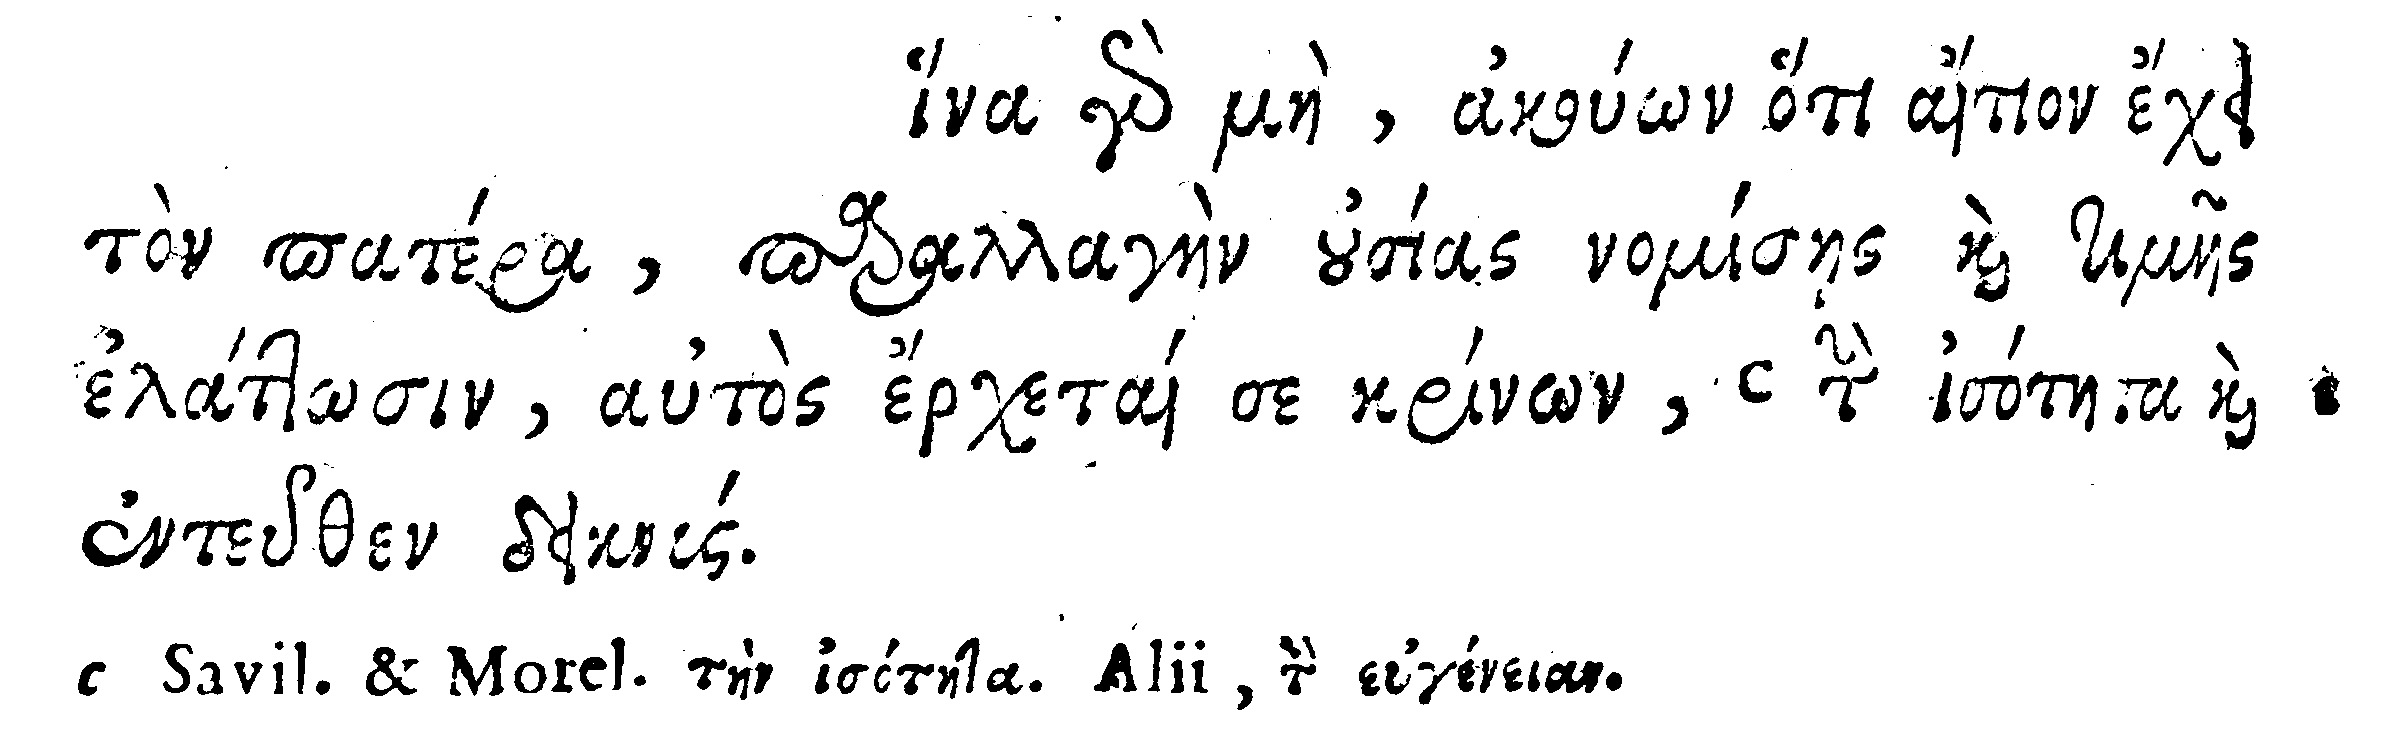 ἵνα γὰρ μὴ, ἀκούων ὅτι αἴτιον ἔχει
τὸν πατέρα, παραλλαγὴν οὐσίας νομίσῃς καὶ τιμῆς
ἐλάττωσιν, αὐτὸς ἔρχεταί σε κρίνων, c τὴν ἰσότητα καὶ
ἐντεῦθεν δεικνύς.
c Savil. & Morel. τὴν ἰσότητα. Alii, τὴν εὐγένειαν.